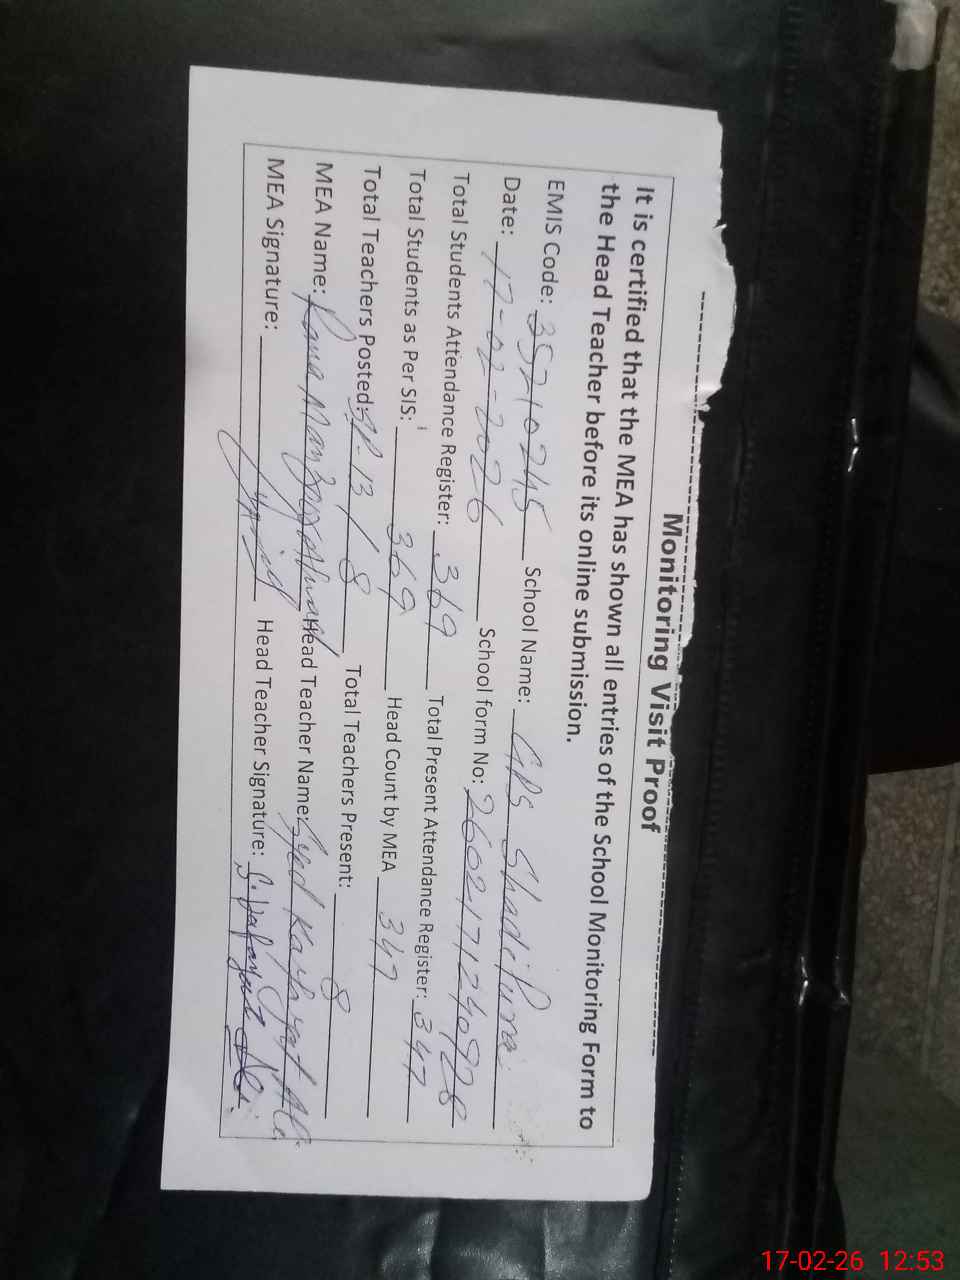 Monitoring Visit Proof
It is certified that the MEA has shown all entries of the School Monitoring Form to
the Head Teacher before its online submission.
EMIS Code: 35210245 School Name: GPS Shadipura
Date: 17-02-2026 School form No: 2602171240928
Total Students Attendance Register: 369 Total Present Attendance Register: 347
Total Students as Per SIS: 369 Head Count by MEA 347
Total Teachers Posted: 13 / 8 Total Teachers Present: 8
MEA Name: Rana Manzoor Ahmad Head Teacher Name: Syed Ali
MEA Signature: Head Teacher Signature:
17-02-26 12:53